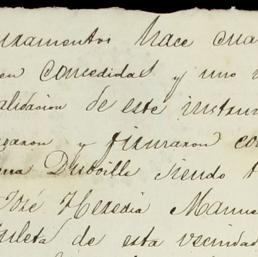 uramentos hace cua
en concedidas y uno
alidacion de este instru
garon y firmaron co
na Duboille siendo t
José Heredia Manue
uleta de esta vecindad